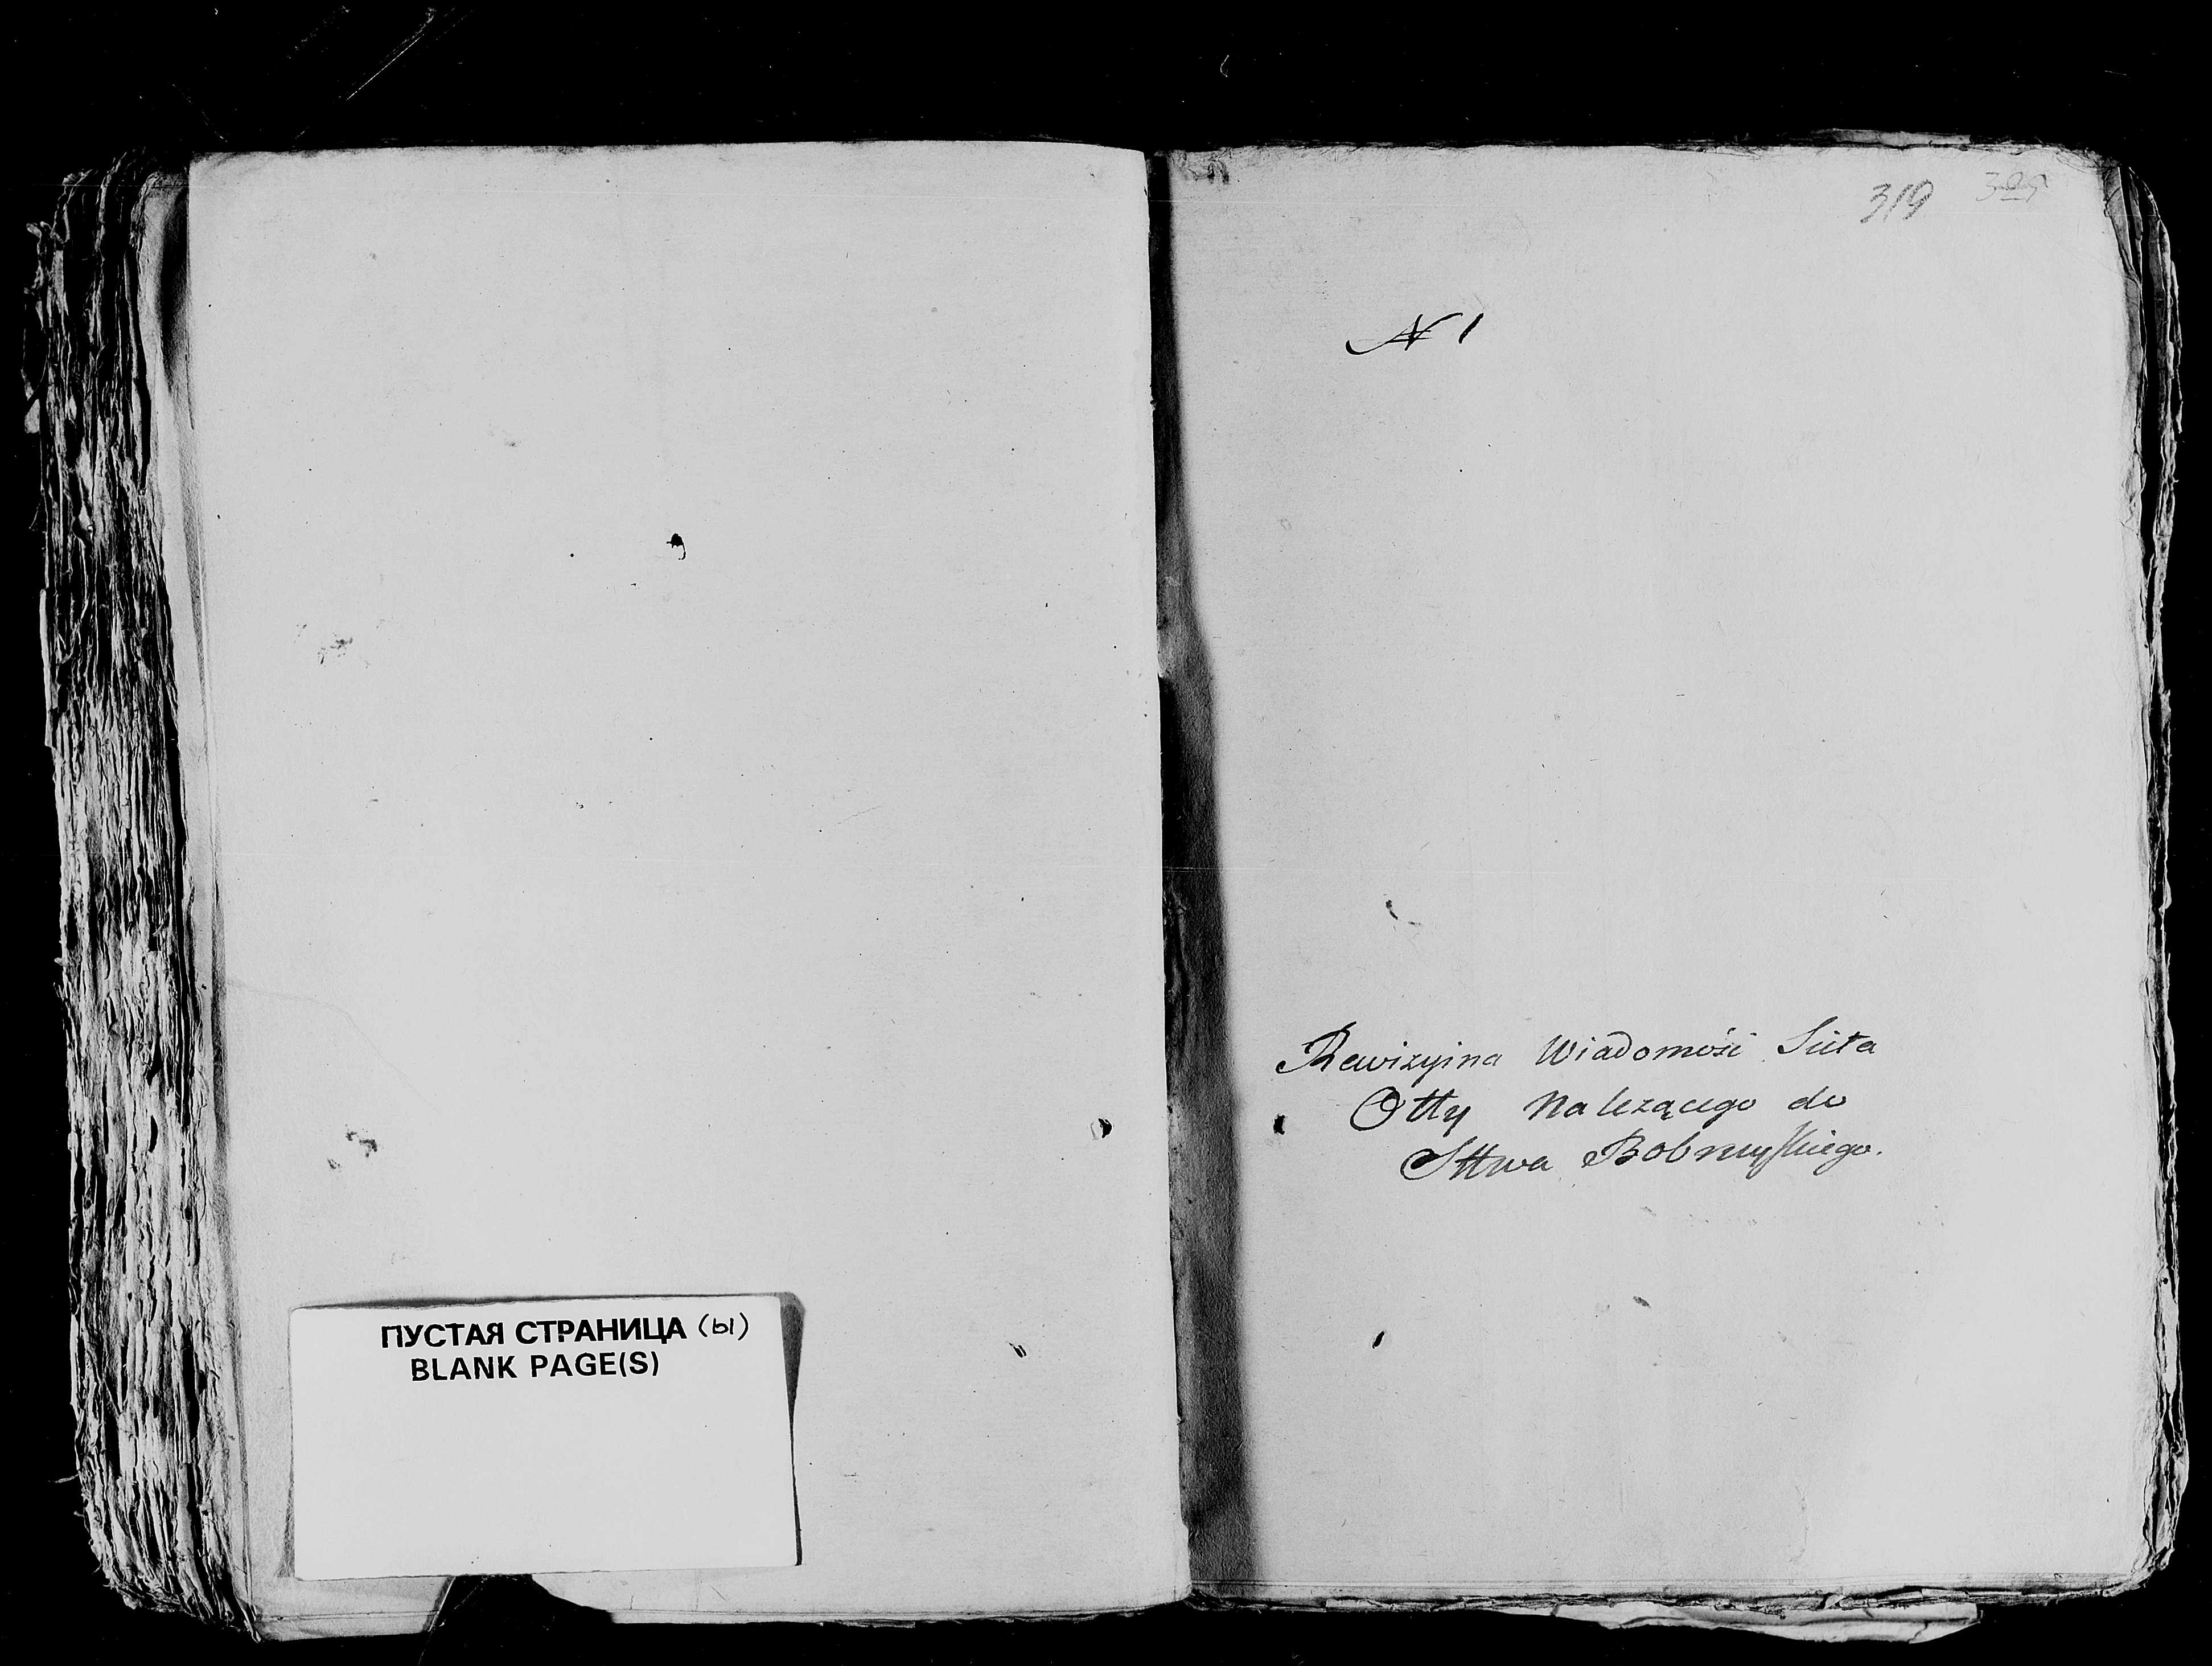 ПУСТАЯ СТРАНИЦА (ы)
BLANK PAGE(S)
319
N 1
Rewizyina Wiadomość Sieła
Otty Należącego do
Sttwa Bobruyskiego.